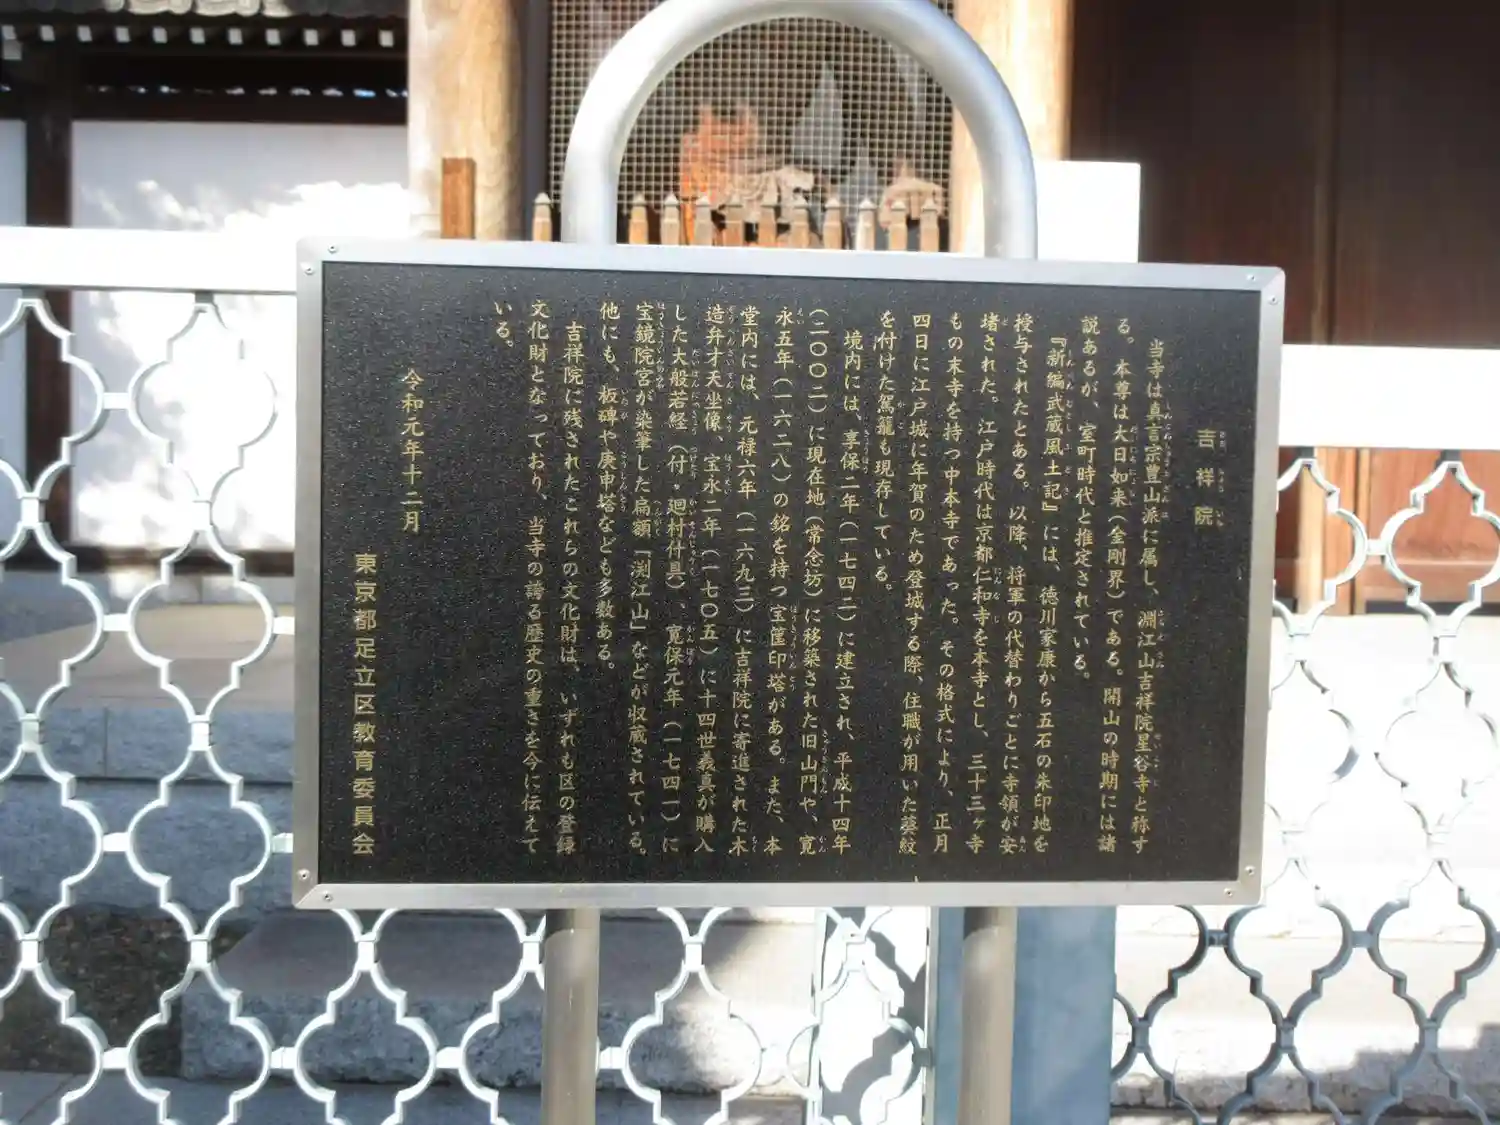 吉祥院
当寺は真言宗豊山派に属し、淵江山吉祥院星谷寺と称す
る。本尊は大日如来（金剛界）である。開山の時期には諸
説あるが、室町時代と推定されている。
『新編武蔵風土記』には、徳川家康から五石の朱印地を
授与されたとある。以降、将軍の代替わりごとに寺領が安
堵された。江戸時代は京都仁和寺を本寺とし、三十三ヶ寺
もの末寺を持つ中本寺であった。その格式により、正月
四日に江戸城に年賀のため登城する際、住職が用いた葵紋
を付けた駕籠も現存している。
境内には、享保二年（一七四二）に建立され、平成十四年
（二〇〇二）に現在地（常念坊）に移築された旧山門や、寛
永五年（一六二八）の銘を持つ宝筐印塔がある。また、本
堂内には、元禄六年（一六九三）に吉祥院に寄進された木
造弁才天坐像、宝永二年（一七〇五）に十四世義真が購入
した大般若経（付・廻村什具）、寛保元年（一七四一）に
宝鏡院宮が染筆した扁額「渕江山」などが収蔵されている。
他にも、板碑や庚申塔なども多数ある。
吉祥院に残されたこれらの文化財は、いずれも区の登録
文化財となっており、当寺の誇る歴史の重さを今に伝えて
いる。
令和元年十二月
東京都足立区教育委員会